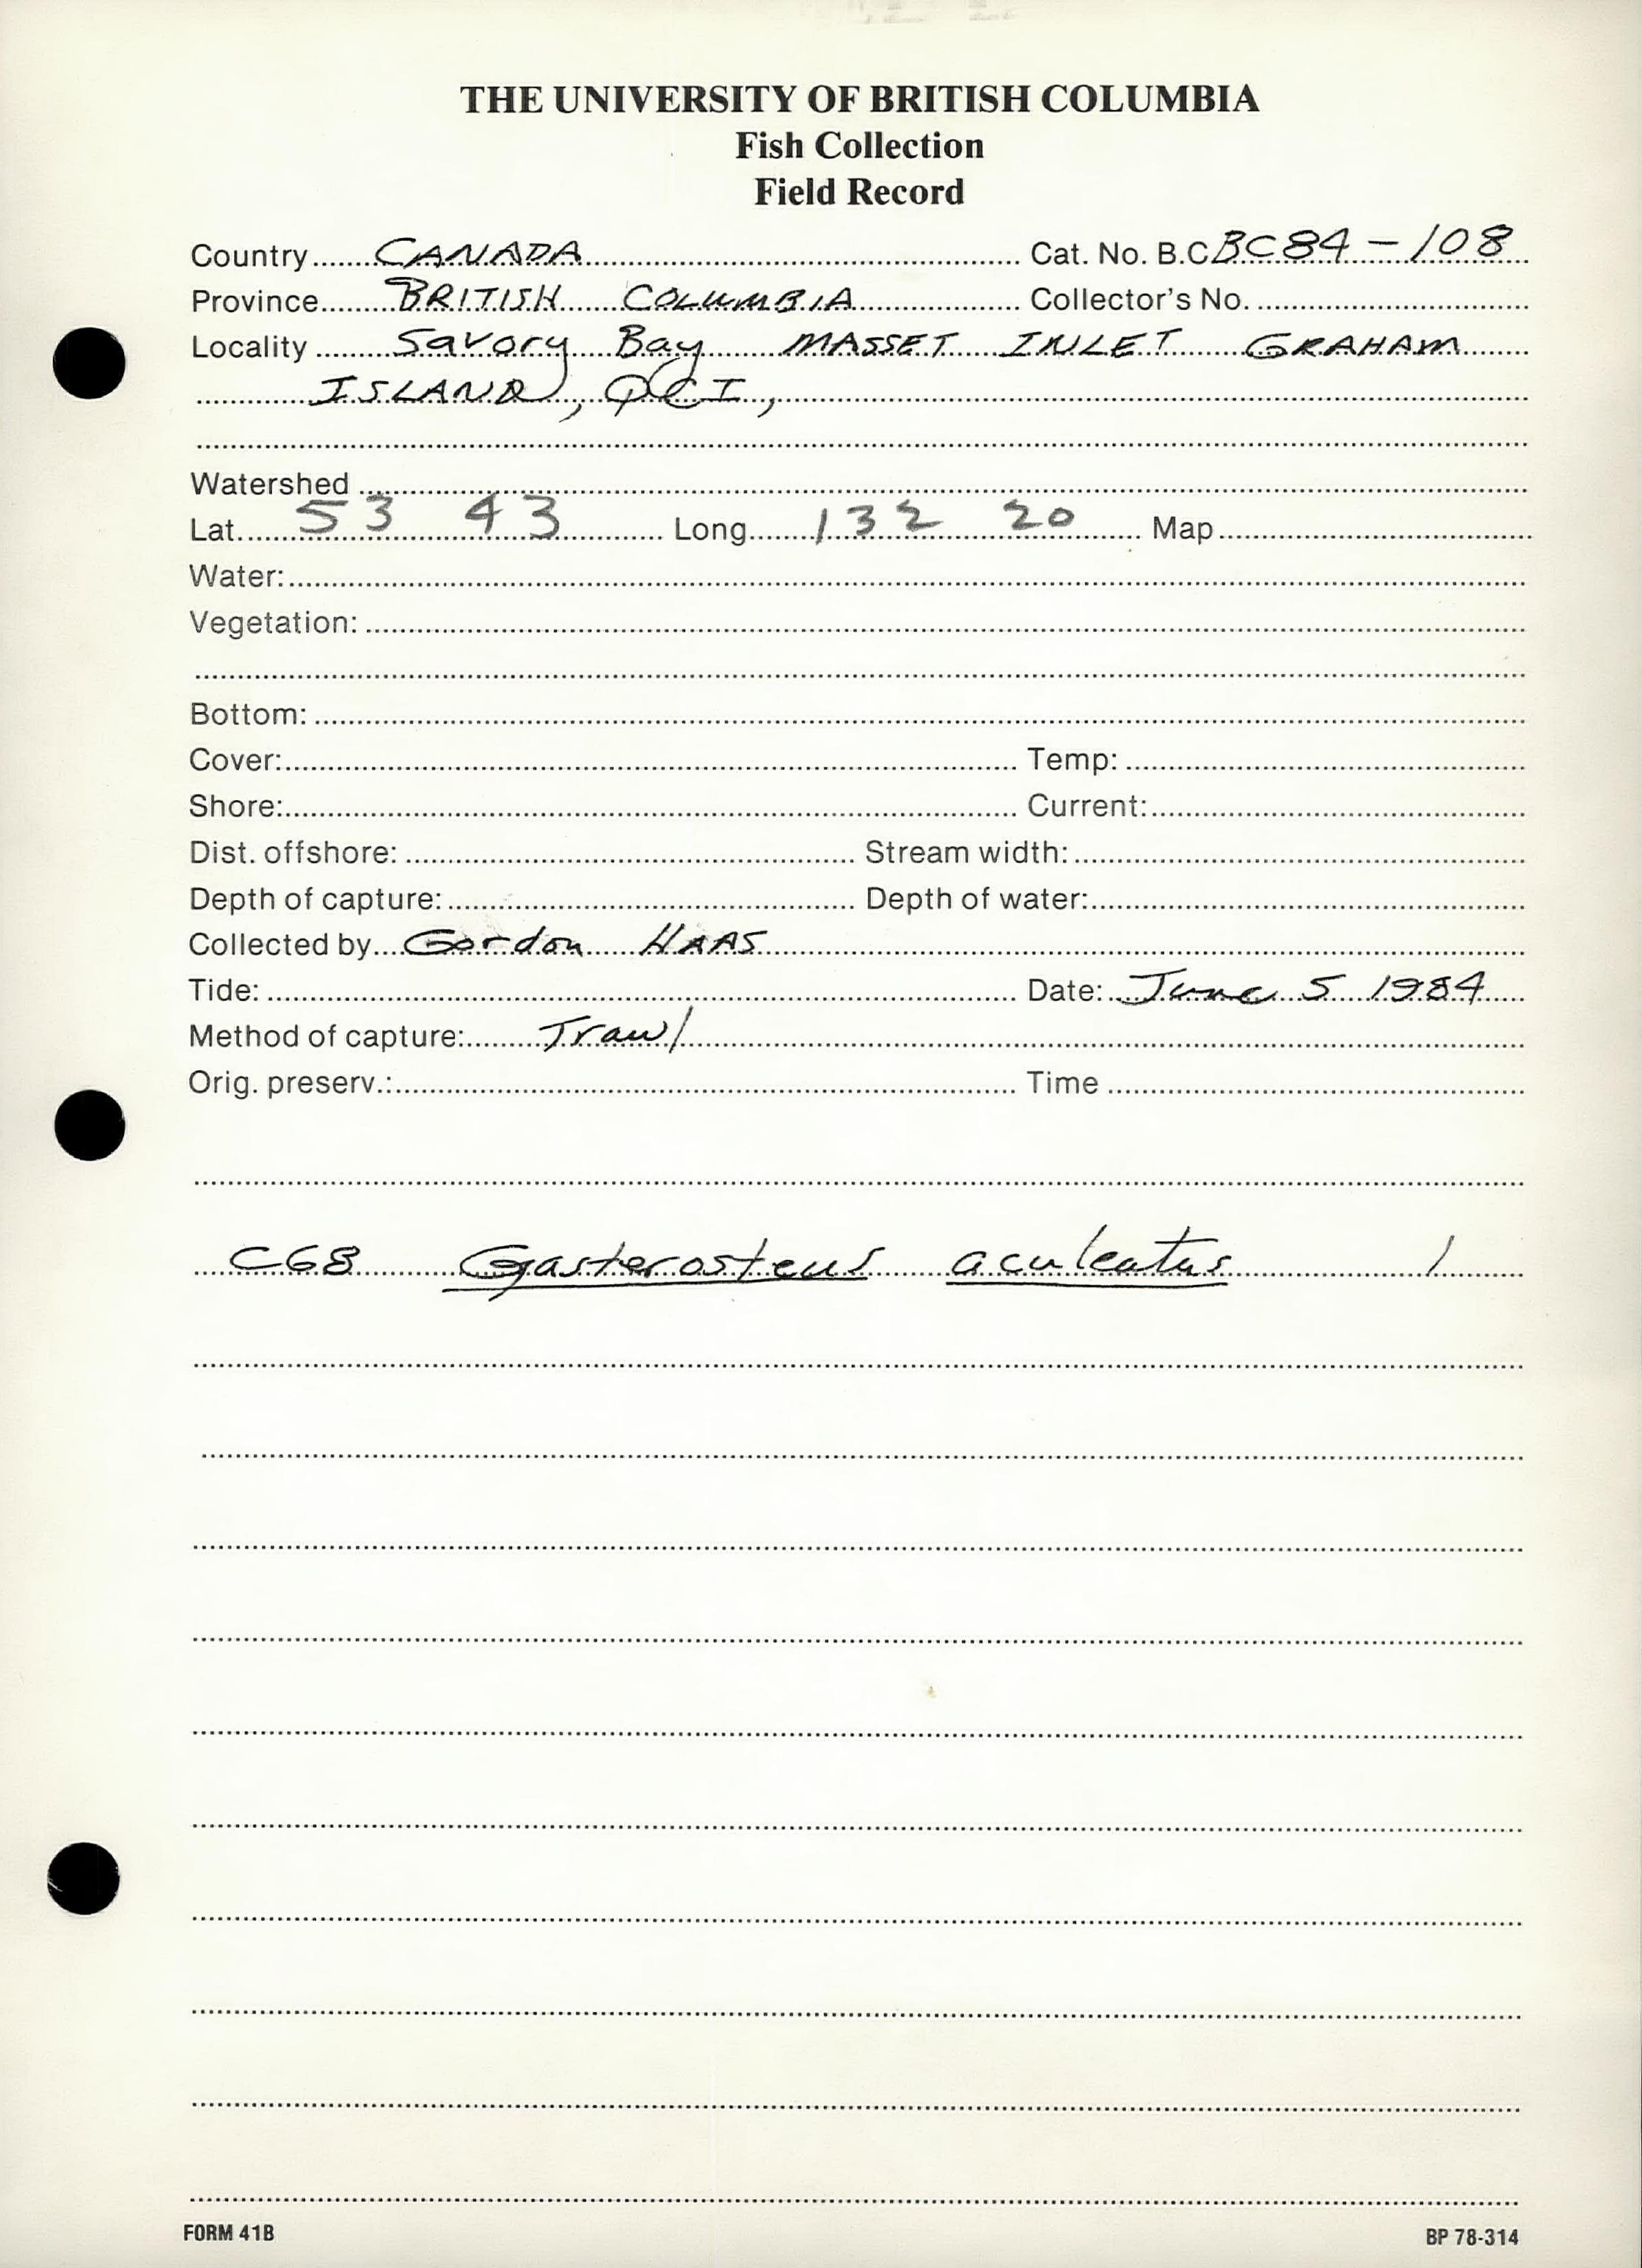 THE UNIVERSITY OF BRITISH COLUMBIA
Fish Collection
Field Record
Country CANADA Cat. No. B.C BC84-108
Province BRITISH COLUMBIA Collector's No.
Locality Savory Bay MASSET INLET GRAHAM
ISLAND, QCI,
Watershed
Lat. 53 43 Long 132 20 Map
Water:
Vegetation:
Bottom:
Cover: Temp:
Shore: Current:
Dist. offshore: Stream width:
Depth of capture: Depth of water:
Collected by Gordon HAAS
Tide: Date: June 5 1984
Method of capture: Trawl
Orig. preserv.: Time
C68 Gasterosteus aculeatus 1
FORM 41B BP 78-314